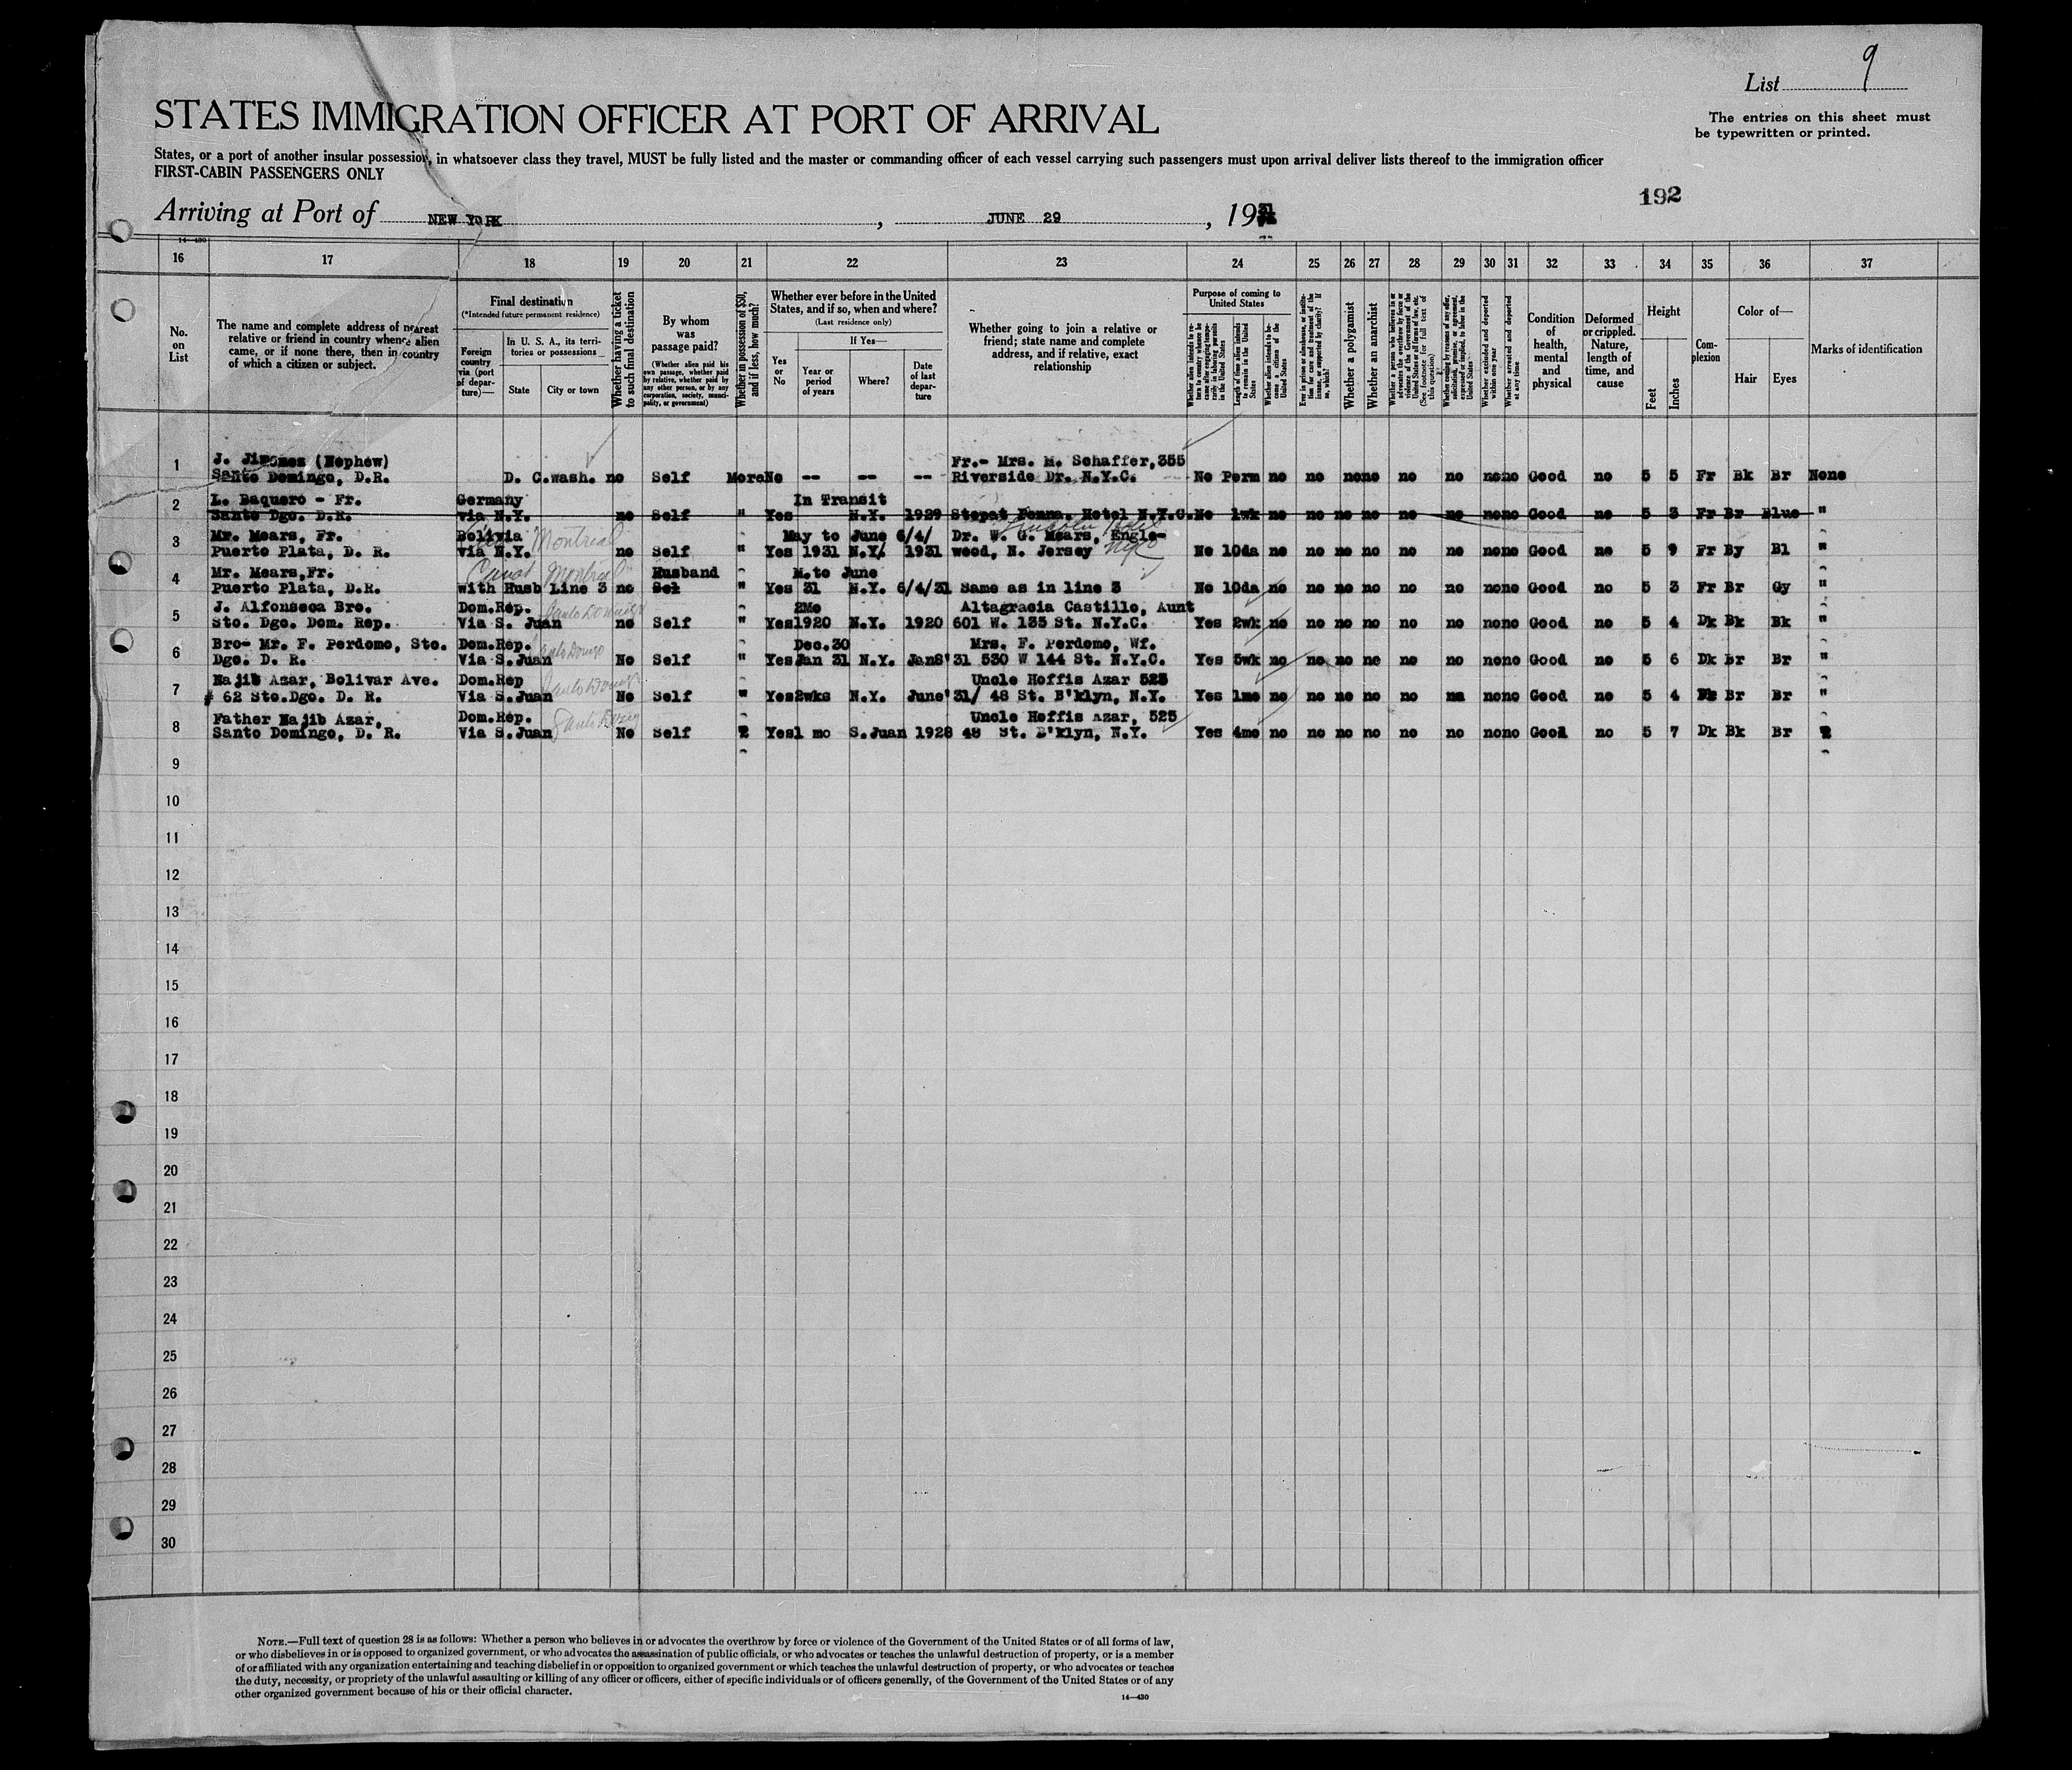 List 9
STATES IMMIGRATION OFFICER AT PORT OF ARRIVAL
The entries on this sheet must
be typewritten or printed.
States, or a port of another insular possession, in whatsoever class they travel, MUST be fully listed and the master or commanding officer of each vessel carrying such passengers must upon arrival deliver lists thereof to the immigration officer
FIRST-CABIN PASSENGERS ONLY
192
Arriving at Port of NEW YORK, JUNE 29, 1931
14—430
16 17 18 19 20 21 22 23 24 25 26 27 28 29 30 31 32 33 34 35 36 37
No. on List
The name and complete address of nearest relative or friend in country whence alien came, or if none there, then in country of which a citizen or subject.
Final destination
(*Intended future permanent residence)
Foreign country via (port of departure)—
In U. S. A., its territories or possessions—
State
City or town
Whether having a ticket to such final destination
By whom was passage paid?
(Whether alien paid his own passage, whether paid by relative, whether paid by any other person, or by any corporation, society, municipality, or government)
Whether in possession of $50, and if less, how much?
Whether ever before in the United States, and if so, when and where?
(Last residence only)
Yes or No
If Yes—
Year or period of years
Where?
Date of last departure
Whether going to join a relative or friend; state name and complete address, and if relative, exact relationship
Purpose of coming to United States
Whether alien intends to return to country whence he came after engaging temporarily in laboring pursuits in the United States
Length of time alien intends to remain in the United States
Whether alien intends to become a citizen of the United States
Ever in prison or almshouse, or institution for care and treatment of the insane, or supported by charity? If so, which?
Whether a polygamist
Whether an anarchist
Whether a person who believes in or advocates the overthrow by force or violence of the Government of the United States or all forms of law, etc. (See footnote for full text of this question)
Whether coming by reasons of any offer, solicitation, promise, or agreement, expressed or implied, to labor in the United States
Whether excluded and deported within one year
Whether arrested and deported at any time
Condition of health, mental and physical
Deformed or crippled. Nature, length of time, and cause
Height
Feet
Inches
Complexion
Color of—
Hair
Eyes
Marks of identification
J. Jimenes (Nephew) Fr.- Mrs. M. Schaffer,355
1 Santo Domingo, D.R. D. C. wash. no Self More No -- -- -- Riverside Dr. N.Y.C. No Perm no no none no no nono Good no 5 5 Fr Bk Br None
L. Baquero - Fr. Germany In Transit
2 Santo Dgo. D.R. via N.Y. no Self " Yes N.Y. 1929 Penna. Hotel N.Y.C. No 1wk no no no no no no nono Good no 5 3 Fr Br Blue "
Mr. Mears, Fr. Bolivia Montreal May to June 6/4/ Dr. W. G. Mears, Engle- Lincoln Hotel
3 Puerto Plata, D. R. via N.Y. no Self " Yes 1931 N.Y. 1931 wood, N. Jersey NYC No 10da no no no no no no nono Good no 5 9 Fr By Bl "
Mr. Mears,Fr. Montreal Husband M.to June
4 Puerto Plata, D.R. with Husb Line 3 no Sel " Yes 31 N.Y. 6/4/31 Same as in line 3 No 10da no no no no no no nono Good no 5 3 Fr Br Gy "
J. Alfonseca Bro. Dom.Rep. Santo Domingo 2Mo Altagracia Castillo, Aunt
5 Sto. Dgo. Dom. Rep. Via S. Juan no Self " Yes 1920 N.Y. 1920 601 W. 135 St. N.Y.C. Yes 2wk no no no no no no nono Good no 5 4 Dk Bk Bk "
Bro- Mr. F. Perdomo, Sto. Dom.Rep. Santo Domingo Dec.30 Mrs. F. Perdomo, Wf.
6 Dgo. D. R. Via S.Juan No Self " Yes Jan 31 N.Y. Jan8'31 530 W 144 St. N.Y.C. Yes 5wk no no no no no no nono Good no 5 6 Dk Br Br "
Najib Azar, Bolivar Ave. Dom.Rep Santo Domingo Uncle Hoffis Azar 525
7 # 62 Sto.Dgo. D. R. Via S.Juan No Self " Yes 2wks N.Y. June'31/ 48 St. B'klyn, N.Y. Yes 1mo no no no no no na nono Good no 5 4 Dk Br Br "
Father Najib Azar, Dom.Rep. Santo Domingo Uncle Hoffis Azar, 525
8 Santo Domingo, D. R. Via S.Juan No Self " Yes 1 mo S.Juan 1928 48 St. B'klyn, N.Y. Yes 4mo no no no no no no nono Good no 5 7 Dk Bk Br "
9
10
11
12
13
14
15
16
17
18
19
20
21
22
23
24
25
26
27
28
29
30
NOTE.—Full text of question 28 is as follows: Whether a person who believes in or advocates the overthrow by force or violence of the Government of the United States or of all forms of law,
or who disbelieves in or is opposed to organized government, or who advocates the assassination of public officials, or who advocates or teaches the unlawful destruction of property, or is a member
of or affiliated with any organization entertaining and teaching disbelief in or opposition to organized government or which teaches the unlawful destruction of property, or who advocates or teaches
the duty, necessity, or propriety of the unlawful assaulting or killing of any officer or officers, either of specific individuals or of officers generally, of the Government of the United States or of any
other organized government because of his or their official character.
14—430